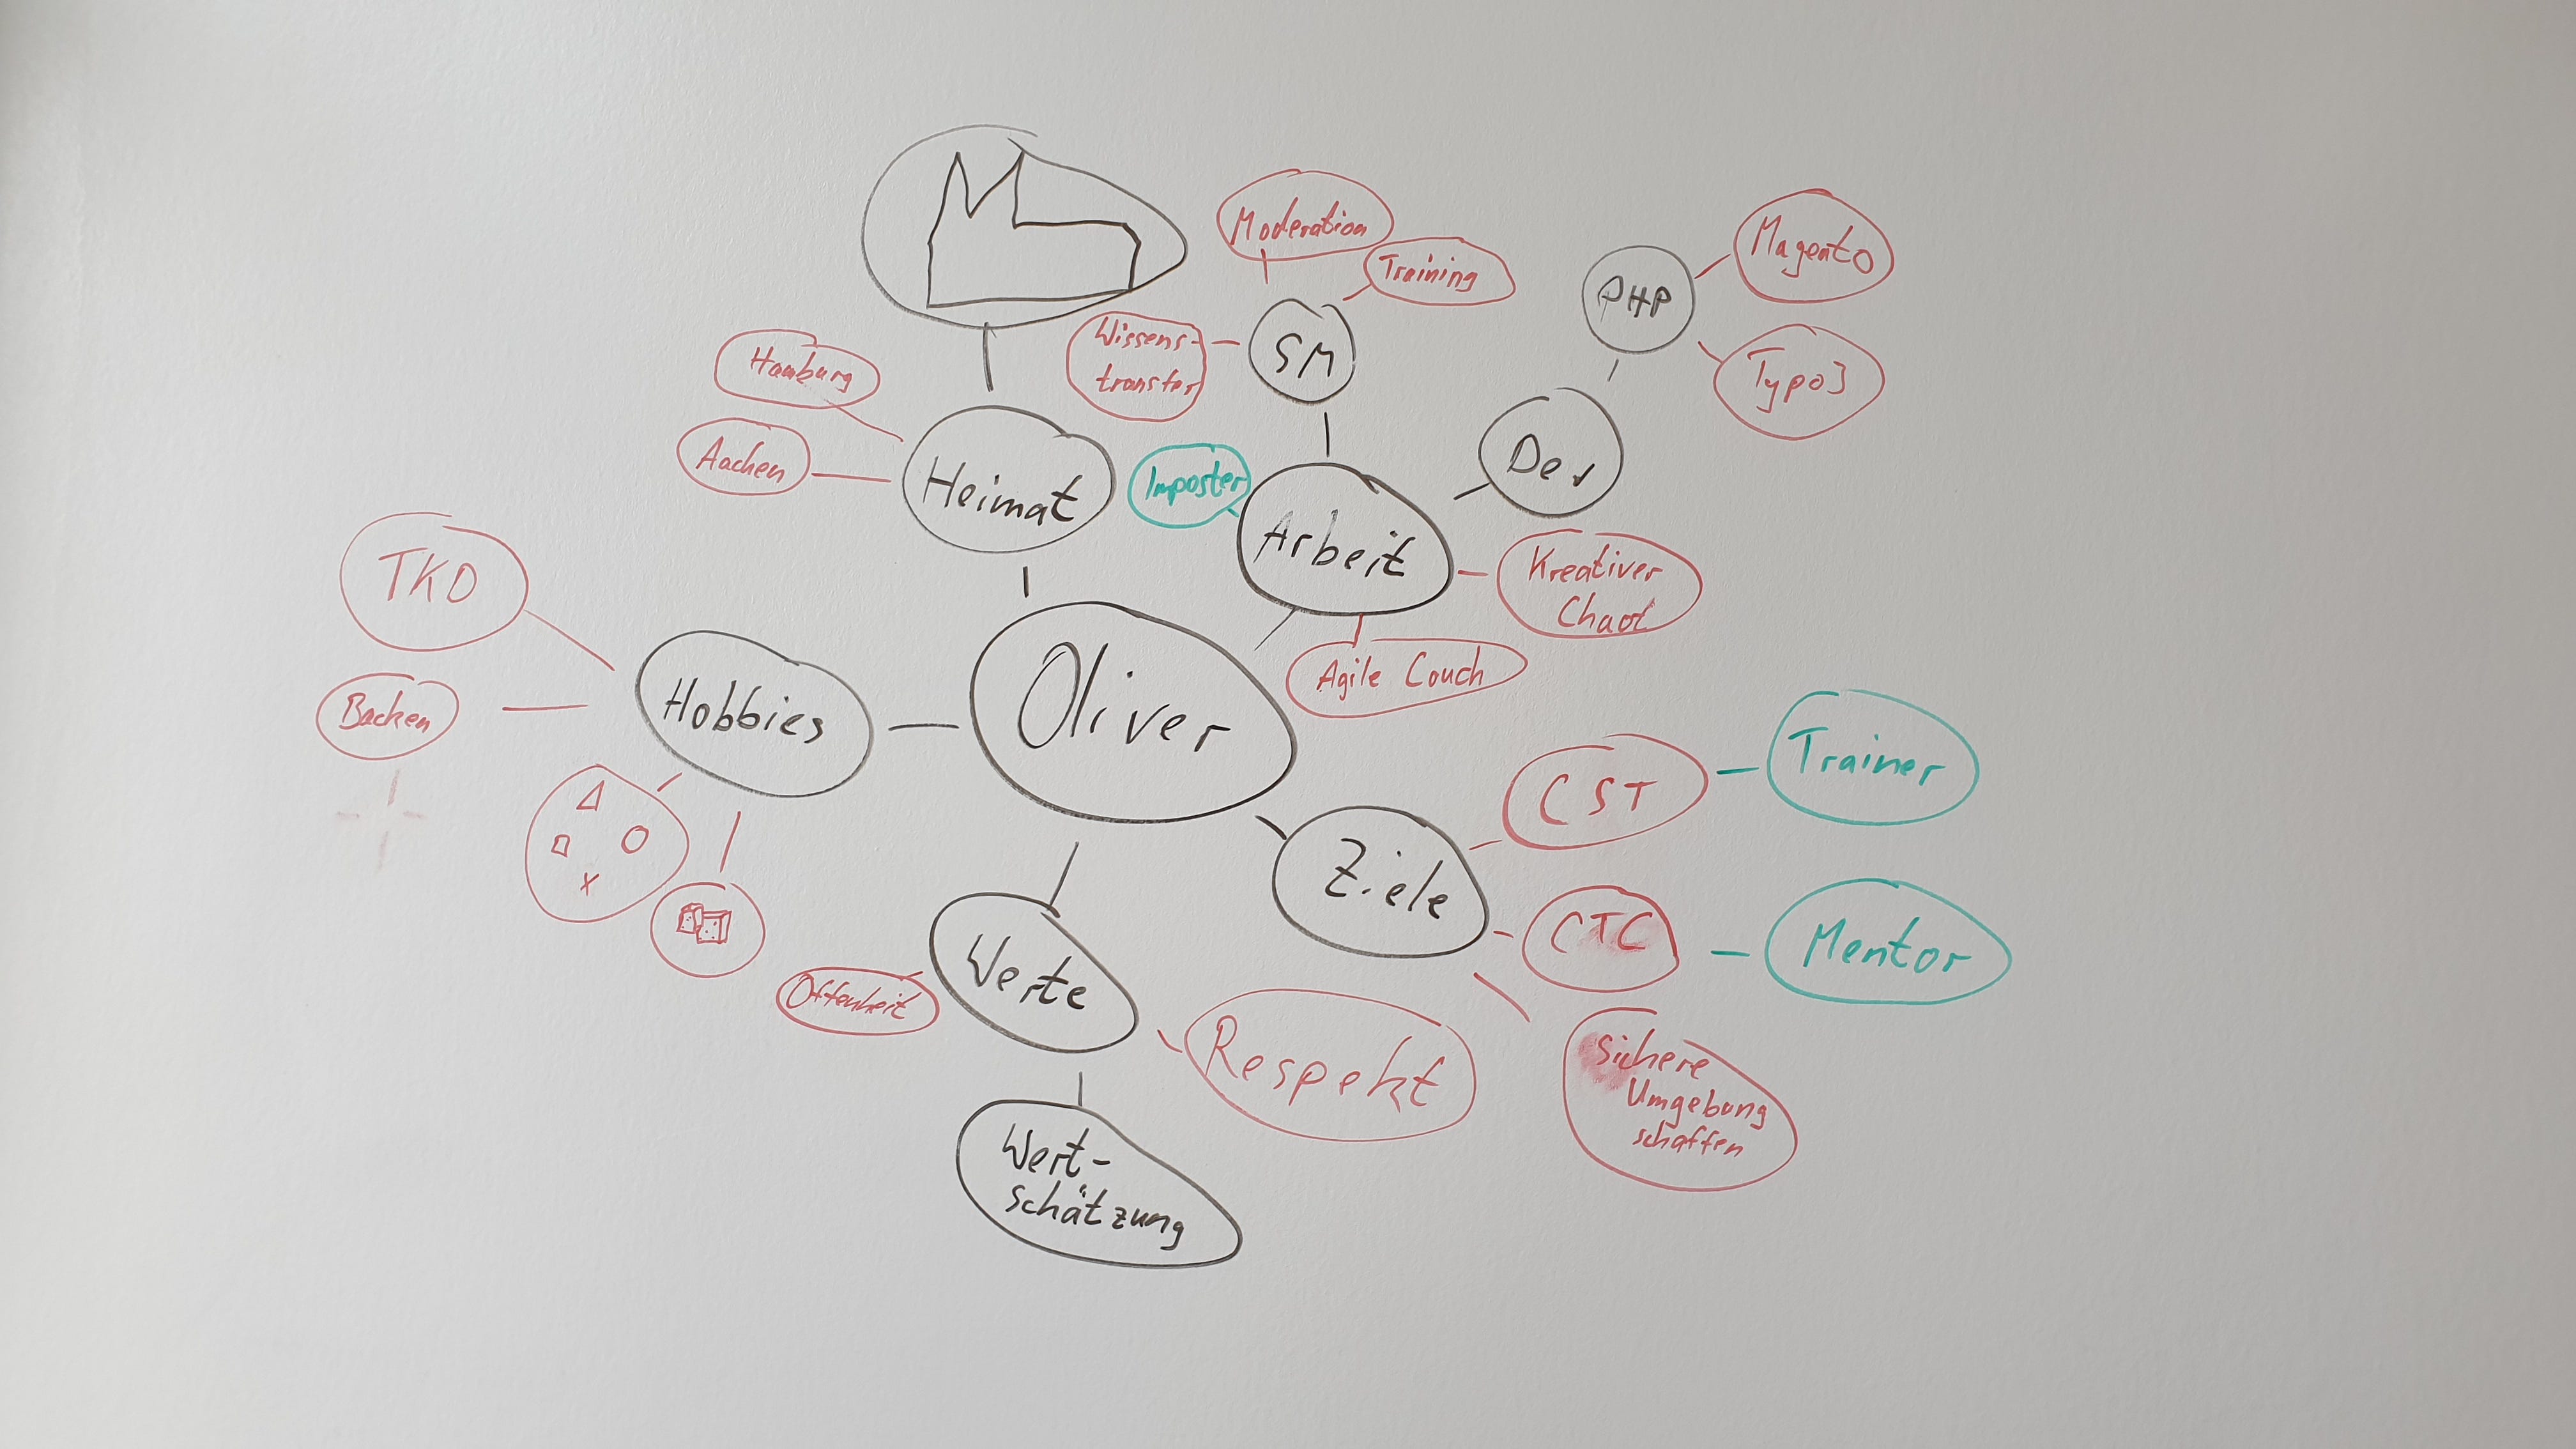 Moderation
Training
Magento
PHP
Wissens-
transfer
SM
Typo3
Hamburg
Aachen
Heimat
Imposter
Arbeit
Dev
Kreativer
Chaot
TKD
Backen
Hobbies
Oliver
Agile Couch
CST
Trainer
Ziele
CTC
Mentor
Offenheit
Werte
Respekt
Sichere
Umgebung
schaffen
Wert-
schätzung